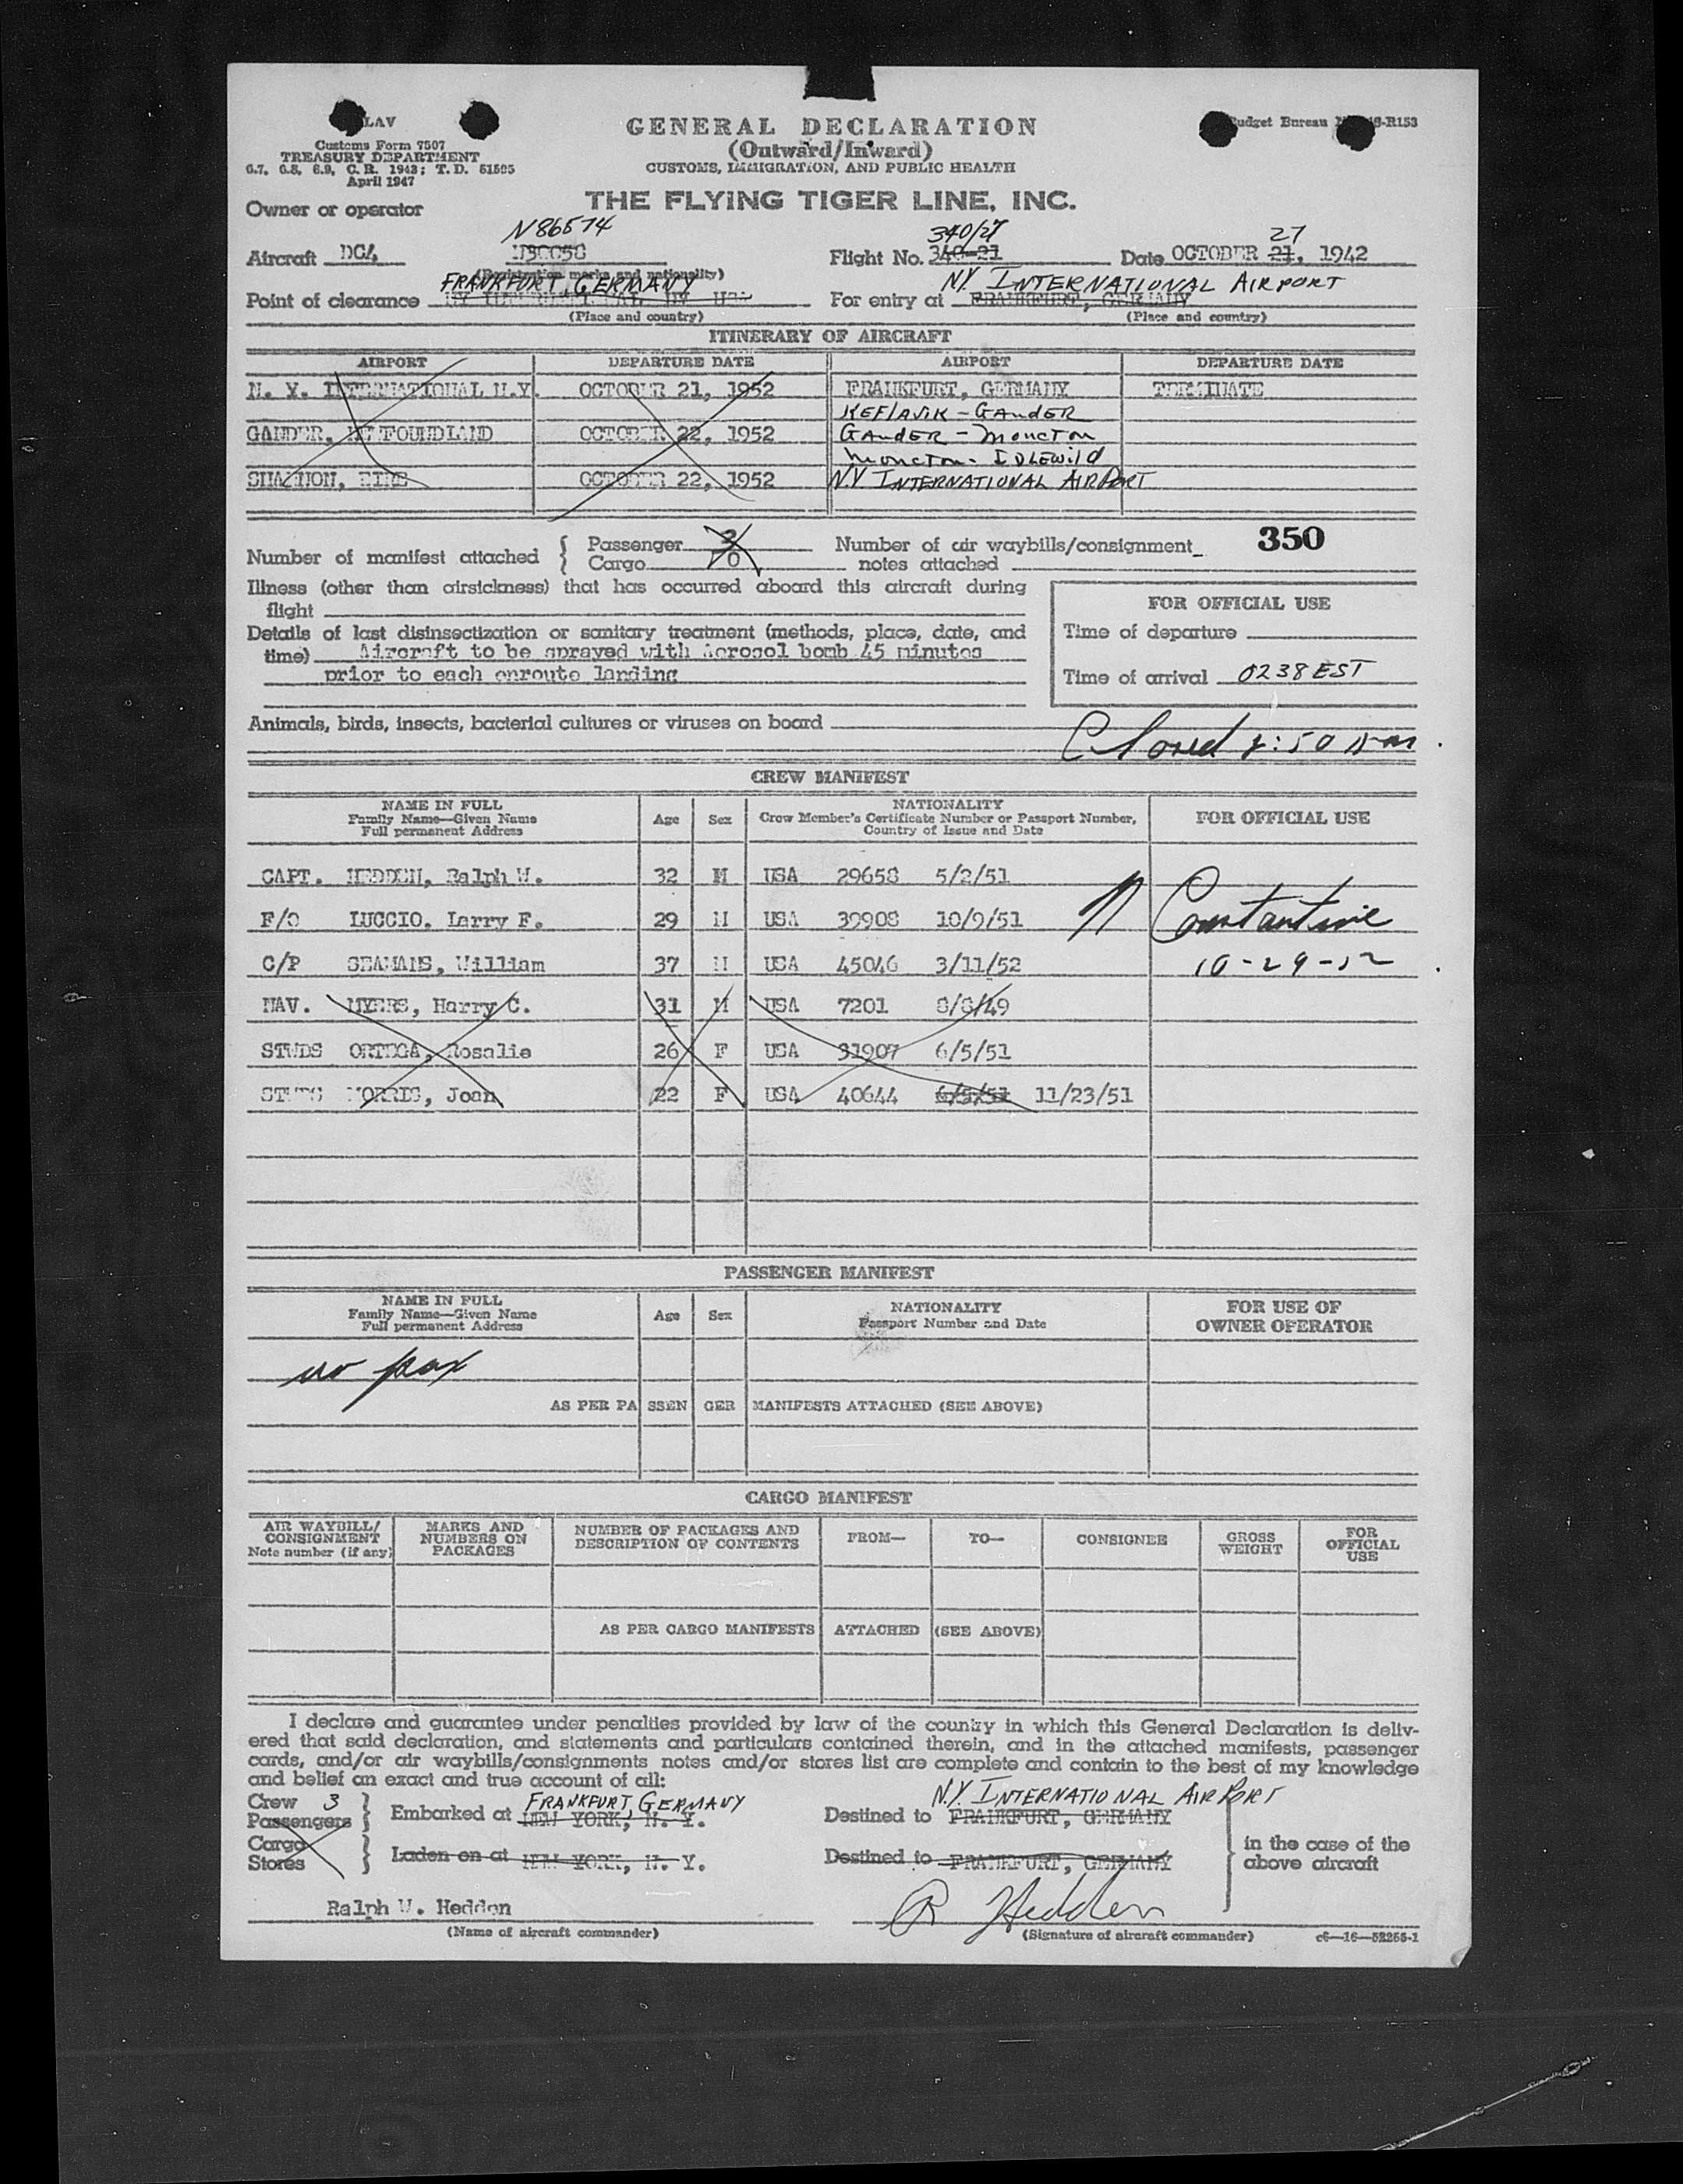 LAV
Customs Form 7507
TREASURY DEPARTMENT
6.7, 6.8, 6.9, C. R. 1943; T. D. 51505
April 1947
Budget Bureau -R153
GENERAL DECLARATION
(Outward/Inward)
CUSTOMS, IMMIGRATION, AND PUBLIC HEALTH
THE FLYING TIGER LINE, INC.
Owner or operator
N86574 340/27 27
Aircraft DC4 Flight No. 340-21 Date OCTOBER 21, 1942
(Registration marks and nationality)
FRANKFURT, GERMANY N.Y. INTERNATIONAL AIRPORT
Point of clearance For entry at FRANKFURT, GERMANY
(Place and country) (Place and country)
ITINERARY OF AIRCRAFT
AIRPORT DEPARTURE DATE AIRPORT DEPARTURE DATE
N. Y. INTERNATIONAL N.Y. OCTOBER 21, 1952 FRANKFURT, GERMANY TERMINATE
KEFLAVIK - GANDER
GANDER, NEWFOUNDLAND OCTOBER 22, 1952 GANDER - MONCTON
MONCTON - IDLEWILD
SHANNON, EIRE OCTOBER 22, 1952 N.Y INTERNATIONAL AIRPORT
Number of manifest attached { Passenger 3 Number of air waybills/consignment 350
Cargo 0 notes attached
Illness (other than airsickness) that has occurred aboard this aircraft during
flight
FOR OFFICIAL USE
Details of last disinsectization or sanitary treatment (methods, place, date, and
Time of departure
time) Aircraft to be sprayed with Aerosol bomb 45 minutes
prior to each enroute landing
Time of arrival 0238 EST
Animals, birds, insects, bacterial cultures or viruses on board
:50
CREW MANIFEST
NAME IN FULL
Family Name—Given Name
Full permanent Address
Age Sex
NATIONALITY
Crew Member's Certificate Number or Passport Number,
Country of Issue and Date
FOR OFFICIAL USE
CAPT. HEDDEN, Ralph W. 32 M USA 29658 5/2/51
F/O LUCCIO, Larry F. 29 M USA 39908 10/9/51 Constantine
C/P SEAMANS, William 37 M USA 45046 3/11/52 10-29-52
NAV. MYERS, Harry C. 31 M USA 7201 8/8/49
STWDS ORTEGA, Rosalie 26 F USA 31907 6/5/51
STWDS MORRIS, Joan 22 F USA 40644 6/5/51 11/23/51
PASSENGER MANIFEST
NAME IN FULL
Family Name—Given Name
Full permanent Address
Age Sex
NATIONALITY
Passport Number and Date
FOR USE OF
OWNER OPERATOR
no pax
AS PER PASSENGER MANIFESTS ATTACHED (SEE ABOVE)
CARGO MANIFEST
AIR WAYBILL/
CONSIGNMENT
Note number (if any)
MARKS AND
NUMBERS ON
PACKAGES
NUMBER OF PACKAGES AND
DESCRIPTION OF CONTENTS
FROM— TO— CONSIGNEE
GROSS
WEIGHT
FOR
OFFICIAL
USE
AS PER CARGO MANIFESTS ATTACHED (SEE ABOVE)
I declare and guarantee under penalties provided by law of the country in which this General Declaration is deliv-
ered that said declaration, and statements and particulars contained therein, and in the attached manifests, passenger
cards, and/or air waybills/consignments notes and/or stores list are complete and contain to the best of my knowledge
and belief an exact and true account of all:
FRANKFURT, GERMANY N.Y. INTERNATIONAL AIRPORT
Crew 3
Passengers } Embarked at NEW YORK, N. Y. Destined to FRANKFURT, GERMANY
Cargo
Stores } Laden on at NEW YORK, N. Y. Destined to FRANKFURT, GERMANY
in the case of the
above aircraft
Ralph W. Hedden R Hedden
(Name of aircraft commander) (Signature of aircraft commander) c6—16—52255-1